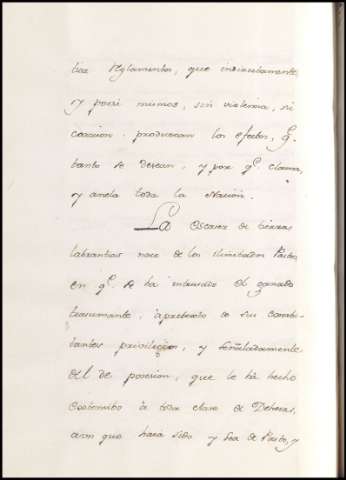 tiva Reglamentos, que indirectamente,
y por si mismos, sin violencia, ni
coaccion produzcan los efectos, q.e
tanto se desean, y por q.e clama,
y anela toda la Nacion.
La escasez de tierras
labrantias nace de los ilimitados Pastos
en q.e se ha introducido el ganado
trasumante, à pretexto de sus exorbi-
tantes privilegios, y señaladamente
del de posesion, que le ha hecho
extensibo à toda clase de Dehesas,
aunque haia sido y sea de Pasto, y